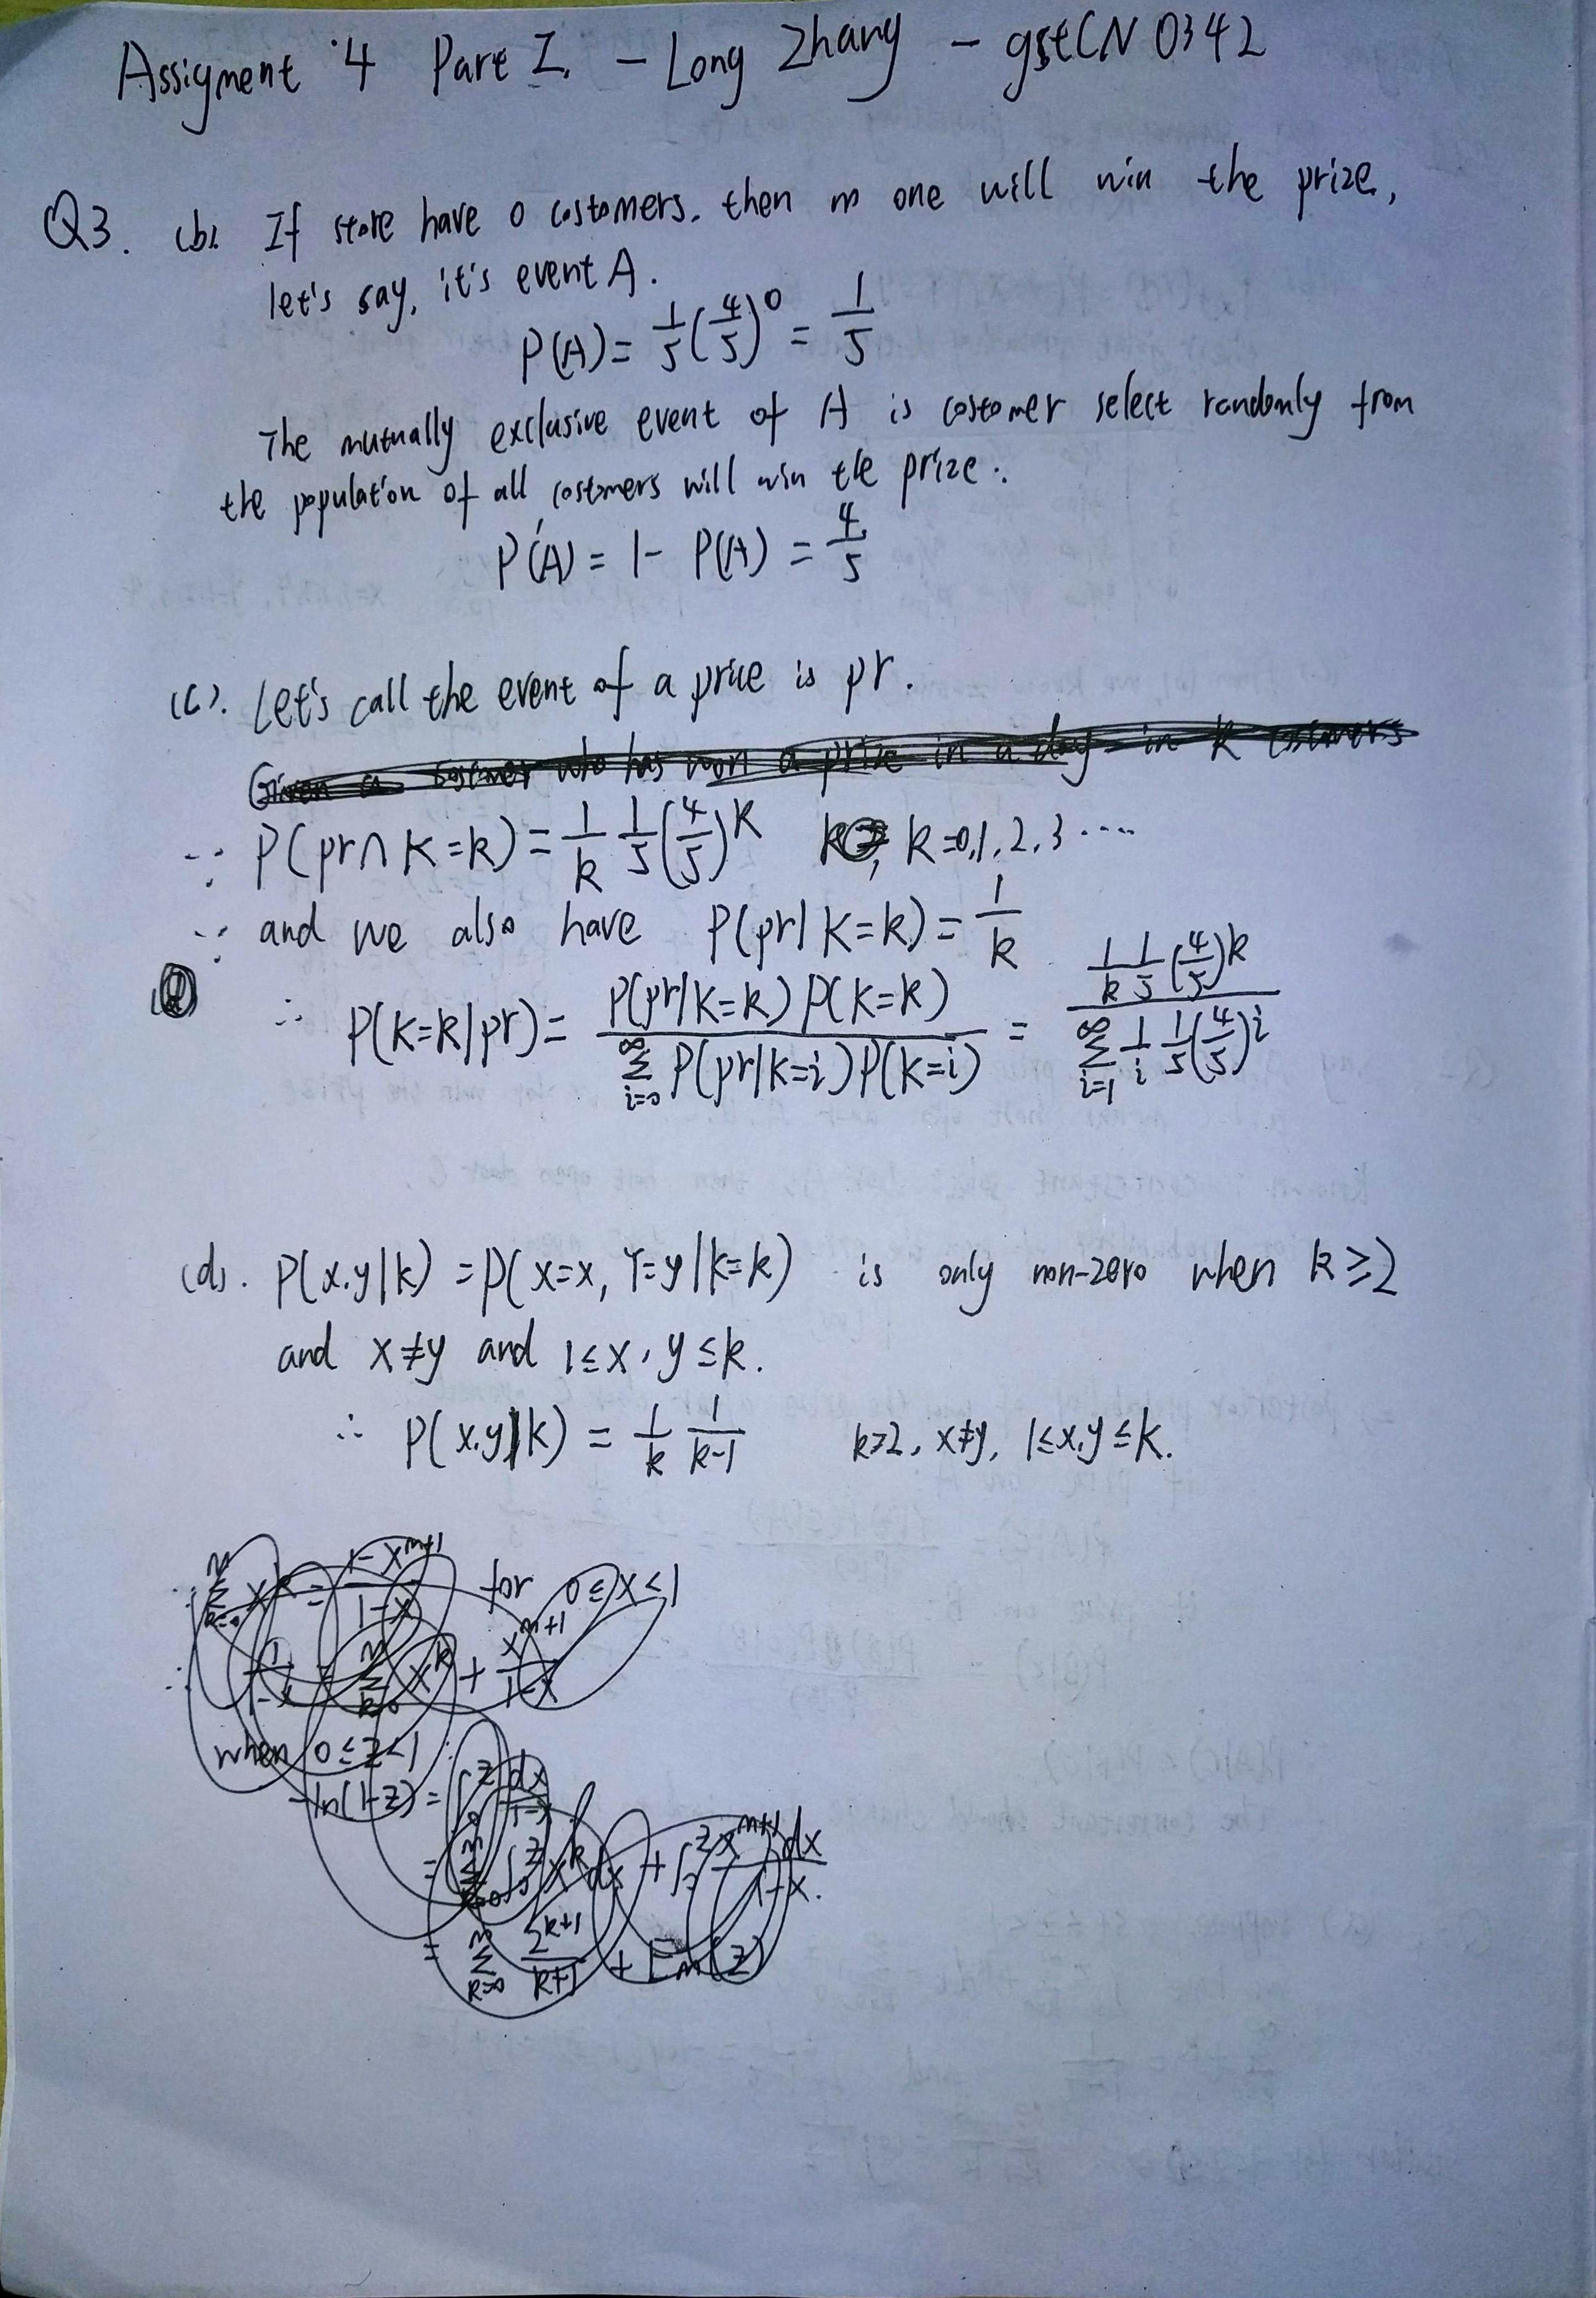 Assigment 4 Part I. - Long Zhang - gstCN 0342
Q3. (b). If store have 0 costomers. then no one will win the prize,
let's say, it's event A.
P(A) = 1/5 (4/5)^0 = 1/5
The mutually exclusive event of A is costomer select randomly from
the population of all costomers will win the prize:
P'(A) = 1 - P(A) = 4/5
(c). Let's call the event of a price is pr.
Given a costmer who has won a prize in a day in k costomers
∵ P(pr ∩ K=k) = 1/k 1/5 (4/5)^k k=0,1,2,3....
∵ and we also have P(pr|K=k) = 1/k
∴ P(K=k|pr) = P(pr|K=k) P(K=k) / ∑_{i=0}^{∞} P(pr|K=i) P(K=i) = 1/k 1/5 (4/5)^k / ∑_{i=1}^{∞} 1/i 1/5 (4/5)^i
(d). P(x.y|k) = P(X=x, Y=y|K=k) is only non-zero when k≥2
and x≠y and 1≤x, y≤k.
∴ P(x.y|k) = 1/k 1/k-1 k≥2, x≠y, 1≤x,y≤k.
∵ ∑_{k=0}^{m} x^k = 1-x^{m+1} / 1-x for 0≤x<1
∴ 1/1-x = ∑_{k=0}^{m} x^k + x^{m+1}/1-x
when 0≤z<1:
-ln(1-z) = ∫_0^z dx/1-x
= ∑_{k=0}^{m} ∫_0^z x^k dx + ∫_0^z x^{m+1} dx/1-x.
= ∑_{k=0}^{m} z^{k+1}/k+1 + E_m(z)